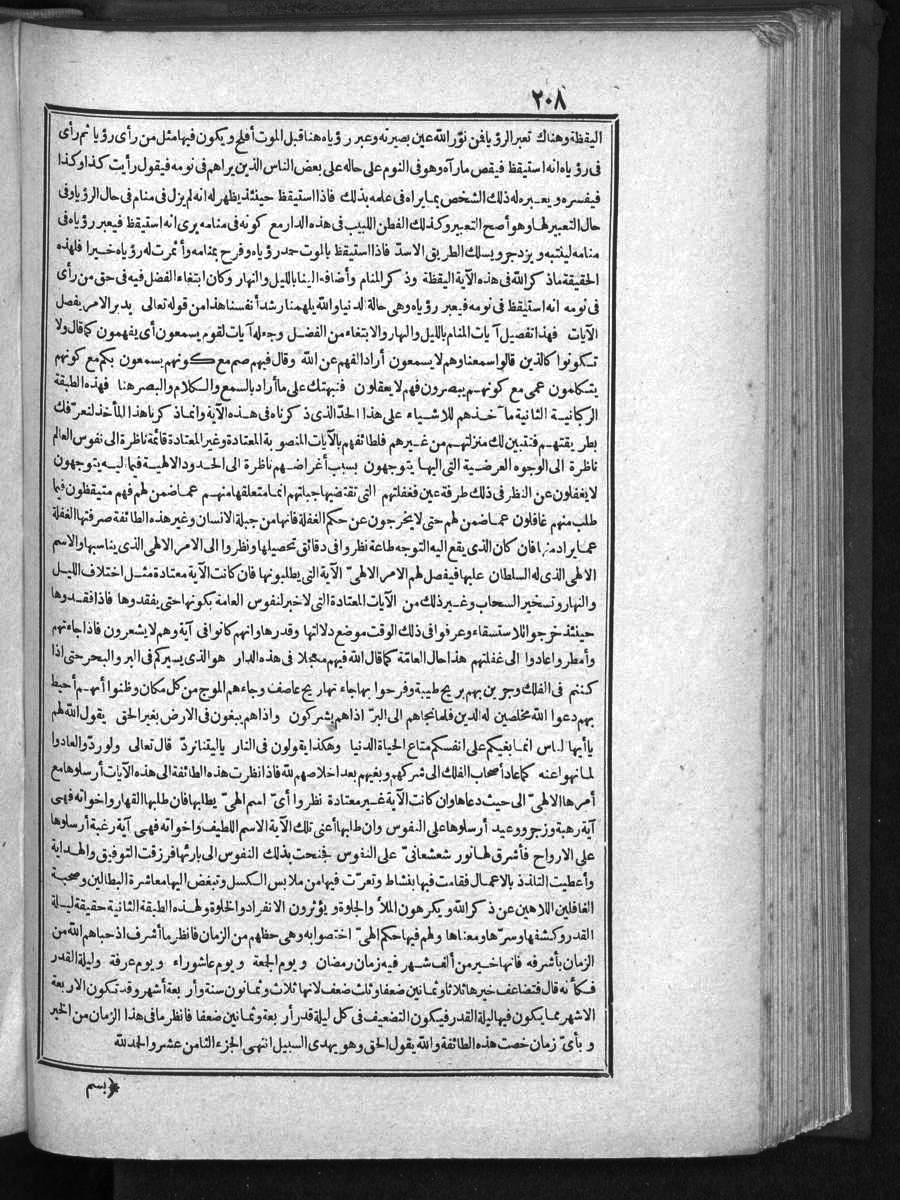 ٢٠٨
اليقظة وهناك تعبر الرؤيا فمن نوّر الله عين بصيرته وعبر رؤياه هنا قبل الموت أفلح ويكون فيها مثل من رأى رؤيا ثم رأى
فى رؤياه انه استيقظ فيقص مارآه وهو فى النوم على حاله على بعض الناس الذين يراهم فى نومه فيقول رأيت كذا وكذا
فيفسره ويعبره له ذلك الشخص بما يراه فى علمه بذلك فاذا استيقظ حينئذ يظهر له انه لم يزل فى منام فى حال الرؤيا وفى
حال التعبير لها وهو أصح التعبير وكذلك الفطن اللبيب فى هذه الدار مع كونه فى منامه يرى انه استيقظ فيعبر رؤياه فى
منامه لينتبه ويزدجر ويسلك الطريق الاسدّ فاذا استيقظ بالموت حمد رؤياه وفرح بمنامه وأثمرت له رؤياه خيرا فلهذه
الحقيقة ماذكر الله فى هذه الآية اليقظة وذكر المنام وأضافه الينا بالليل والنهار وكان ابتغاء الفضل فيه فى حق من رأى
فى نومه انه استيقظ فى نومه فيعبر رؤياه وهى حالة الدنيا والله يلهمنا رشد أنفسنا هذا من قوله تعالى يدبر الامر يفصل
الآيات فهذا تفصيل آيات المنام بالليل والنهار والابتغاء من الفضل وجعله آيات لقوم يسمعون أى يفهمون كما قال ولا
تكونوا كالذين قالوا سمعنا وهم لا يسمعون أراد الفهم عن الله وقال فيهم صم مع كونهم يسمعون بكم مع كونهم
يتكلمون عمى مع كونهم يبصرون فهم لا يعقلون فنبهتك على ما أراد بالسمع والكلام والبصر هنا فهذه الطبقة
الركبانية الثانية مآخذهم للاشياء على هذا الحدّ الذى ذكرناه فى هذه الآية وانماذكرنا هذا المأخذ لنعرّفك
بطريقتهم فتتبين لك منزلتهم من غيرهم فلطائفهم بالآيات المنصوبة المعتادة وغير المعتادة قائمة ناظرة الى نفوس العالم
ناظرة الى الوجوه العرضية التى اليها يتوجهون بسبب أغراضهم ناظرة الى الحدود الالهية فيما اليه يتوجهون
لا يغفلون عن النظر فى ذلك طرفة عين فغفلتهم التى تقتضيها جبلتهم انما متعلقها منهم عماضمن لهم فهم متيقظون فيما
طلب منهم غافلون عماضمن لهم حتى لا يخرجون عن حكم الغفلة فانها من جبلة الانسان وغير هذه الطائفة صرفتها الغفلة
عما يراد منها فان كان الذى يقع اليه التوجه طاعة نظروا فى دقائق تحصيلها ونظروا الى الامر الالهى الذى يناسبها والاسم
الالهى الذى له السلطان عليها فيفصل لهم الامر الالهىّ الآية التى يطلبونها فان كانت الآية معتادة مثل اختلاف الليل
والنهار وتسخير السحاب وغير ذلك من الآيات المعتادة التى لا خبر لنفوس العامة بكونها حتى يفقدوها فاذا فقدوها
حينئذ خرجوا للاستسقاء وعرفوا فى ذلك الوقت موضع دلالتها وقدرها وانهم كانوا فى آية وهم لا يشعرون فاذا جاءتهم
وأمطروا عادوا الى غفلتهم هذا حال العامّة كما قال الله فيهم معجلا فى هذه الدار هو الذى يسيركم فى البر والبحر حتى اذا
كنتم فى الفلك وجرين بهم بريح طيبة وفرحوا بها جاءتها ريح عاصف وجاءهم الموج من كل مكان وظنوا أنهم أحيط
بهم دعوا الله مخلصين له الدين فلما نجاهم الى البرّ اذاهم يشركون واذاهم يبغون فى الارض بغير الحق يقول الله لهم
ياأيها الناس انما بغيكم على انفسكم متاع الحياة الدنيا وهكذا يقولون فى النار ياليتنا نردّ قال تعالى ولو ردّوا لعادوا
لما نهوا عنه كما عاد أصحاب الفلك الى شركهم وبغيهم بعد اخلاصهم لله فاذا نظرت هذه الطائفة الى هذه الآيات أرسلوها مع
أمرها الالهىّ الى حيث دعاها وان كانت الآية غير معتادة نظروا أىّ اسم الهىّ يطلبها فان طلبها القهار واخوانه فهى
آية رهبة وزجر ووعيد أرسلوها على النفوس وان طلبها أعنى تلك الآية الاسم اللطيف واخوانه فهى آية رغبة أرسلوها
على الارواح فأشرق لها نور شعشعانىّ على النفوس فجنحت بذلك النفوس الى بارئها فرزقت التوفيق والهداية
وأعطيت التلذذ بالاعمال فقامت فيها بنشاط وتعرّت فيها من ملابس الكسل وتبغض اليها معاشرة البطالين وصحبة
الغافلين اللاهين عن ذكر الله ويكرهون الملأ والجلوة ويؤثرون الانفراد والخلوة ولهذه الطبقة الثانية حقيقة ليلة
القدر وكشفها وسرّها ومعناها ولهم فيها حكم الهىّ اختصوا به وهى حظهم من الزمان فانظر ما أشرف اذ حباهم الله من
الزمان بأشرفه فانها خير من ألف شهر فيه زمان رمضان ويوم الجمعة ويوم عاشوراء ويوم عرفة وليلة القدر
فكأنه قال فتضاعف خيرها ثلاثا وثمانين ضعفا وثلث ضعف لانها ثلاث وثمانون سنة وأربعة أشهر وقد تكون الاربعة
الاشهر مما يكون فيها ليلة القدر فيكون التضعيف فى كل ليلة قدر أربعة وثمانين ضعفا فانظر ما فى هذا الزمان من الخير
وبأىّ زمان خصت هذه الطائفة والله يقول الحق وهو يهدى السبيل انتهى الجزء الثامن عشر والحمد لله
﴿بسم